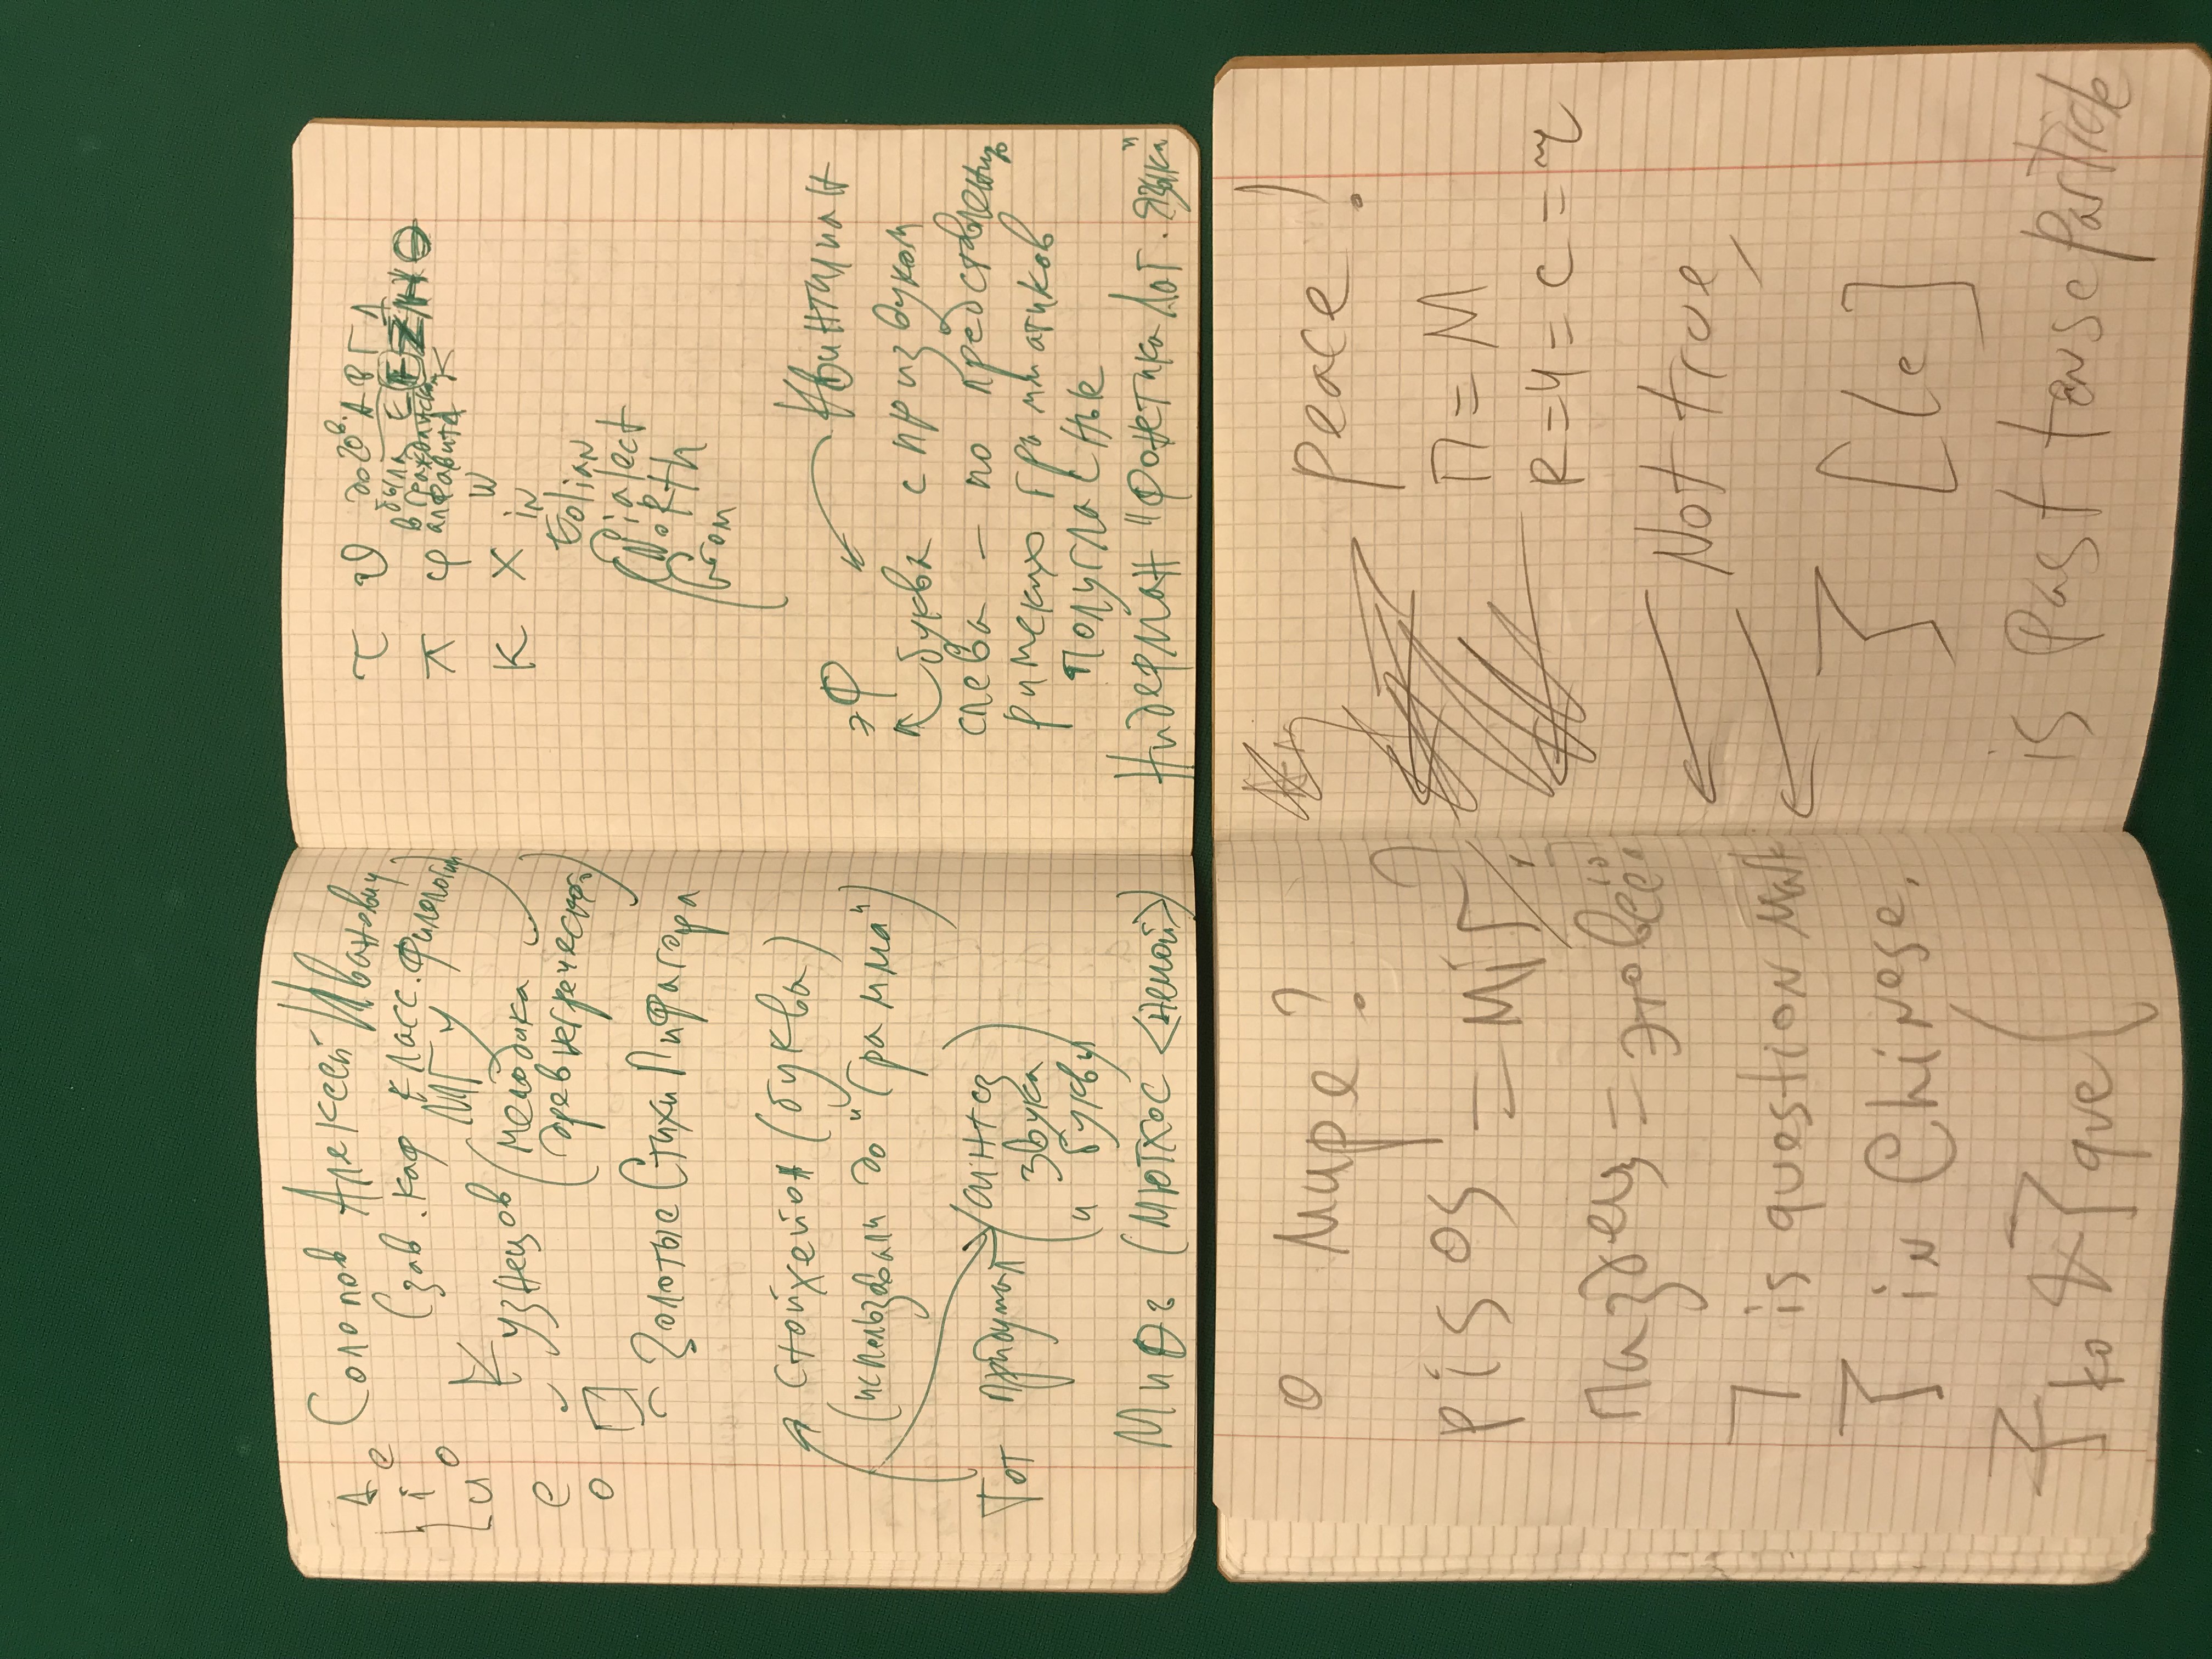 Солопов Алексей Иванович
(зав. каф класс. филологии
МГУ)
А е
i о
u
е
о
Кузнецов (мелодика
древнегреческого)
Золотые Стихи Пифагора
стойхейон (буква)
(использовали до "грамма")
Тот придумал (синтез
звука
и буквы)
Миѳъ (мютхос <немой>)
τ ϑ
π φ
κ χ
до 20в. А В Г Δ
была
в гражданском
алфавите
W
in
Eolian
Dialect
(North
Grom
Квинтилиан
эФ
буква с призвуком
слева – по представлению
римских грамматиков
полугласные
Нидерман "Фонетика Лат. языка"
о мире?
pisos = мiг?
паздец = это всё?
7 is question mark
in Chinese.
ко & que (
peace!
П = М
R = Ч = С = ч
Not true,
[le]
is Past tense particle